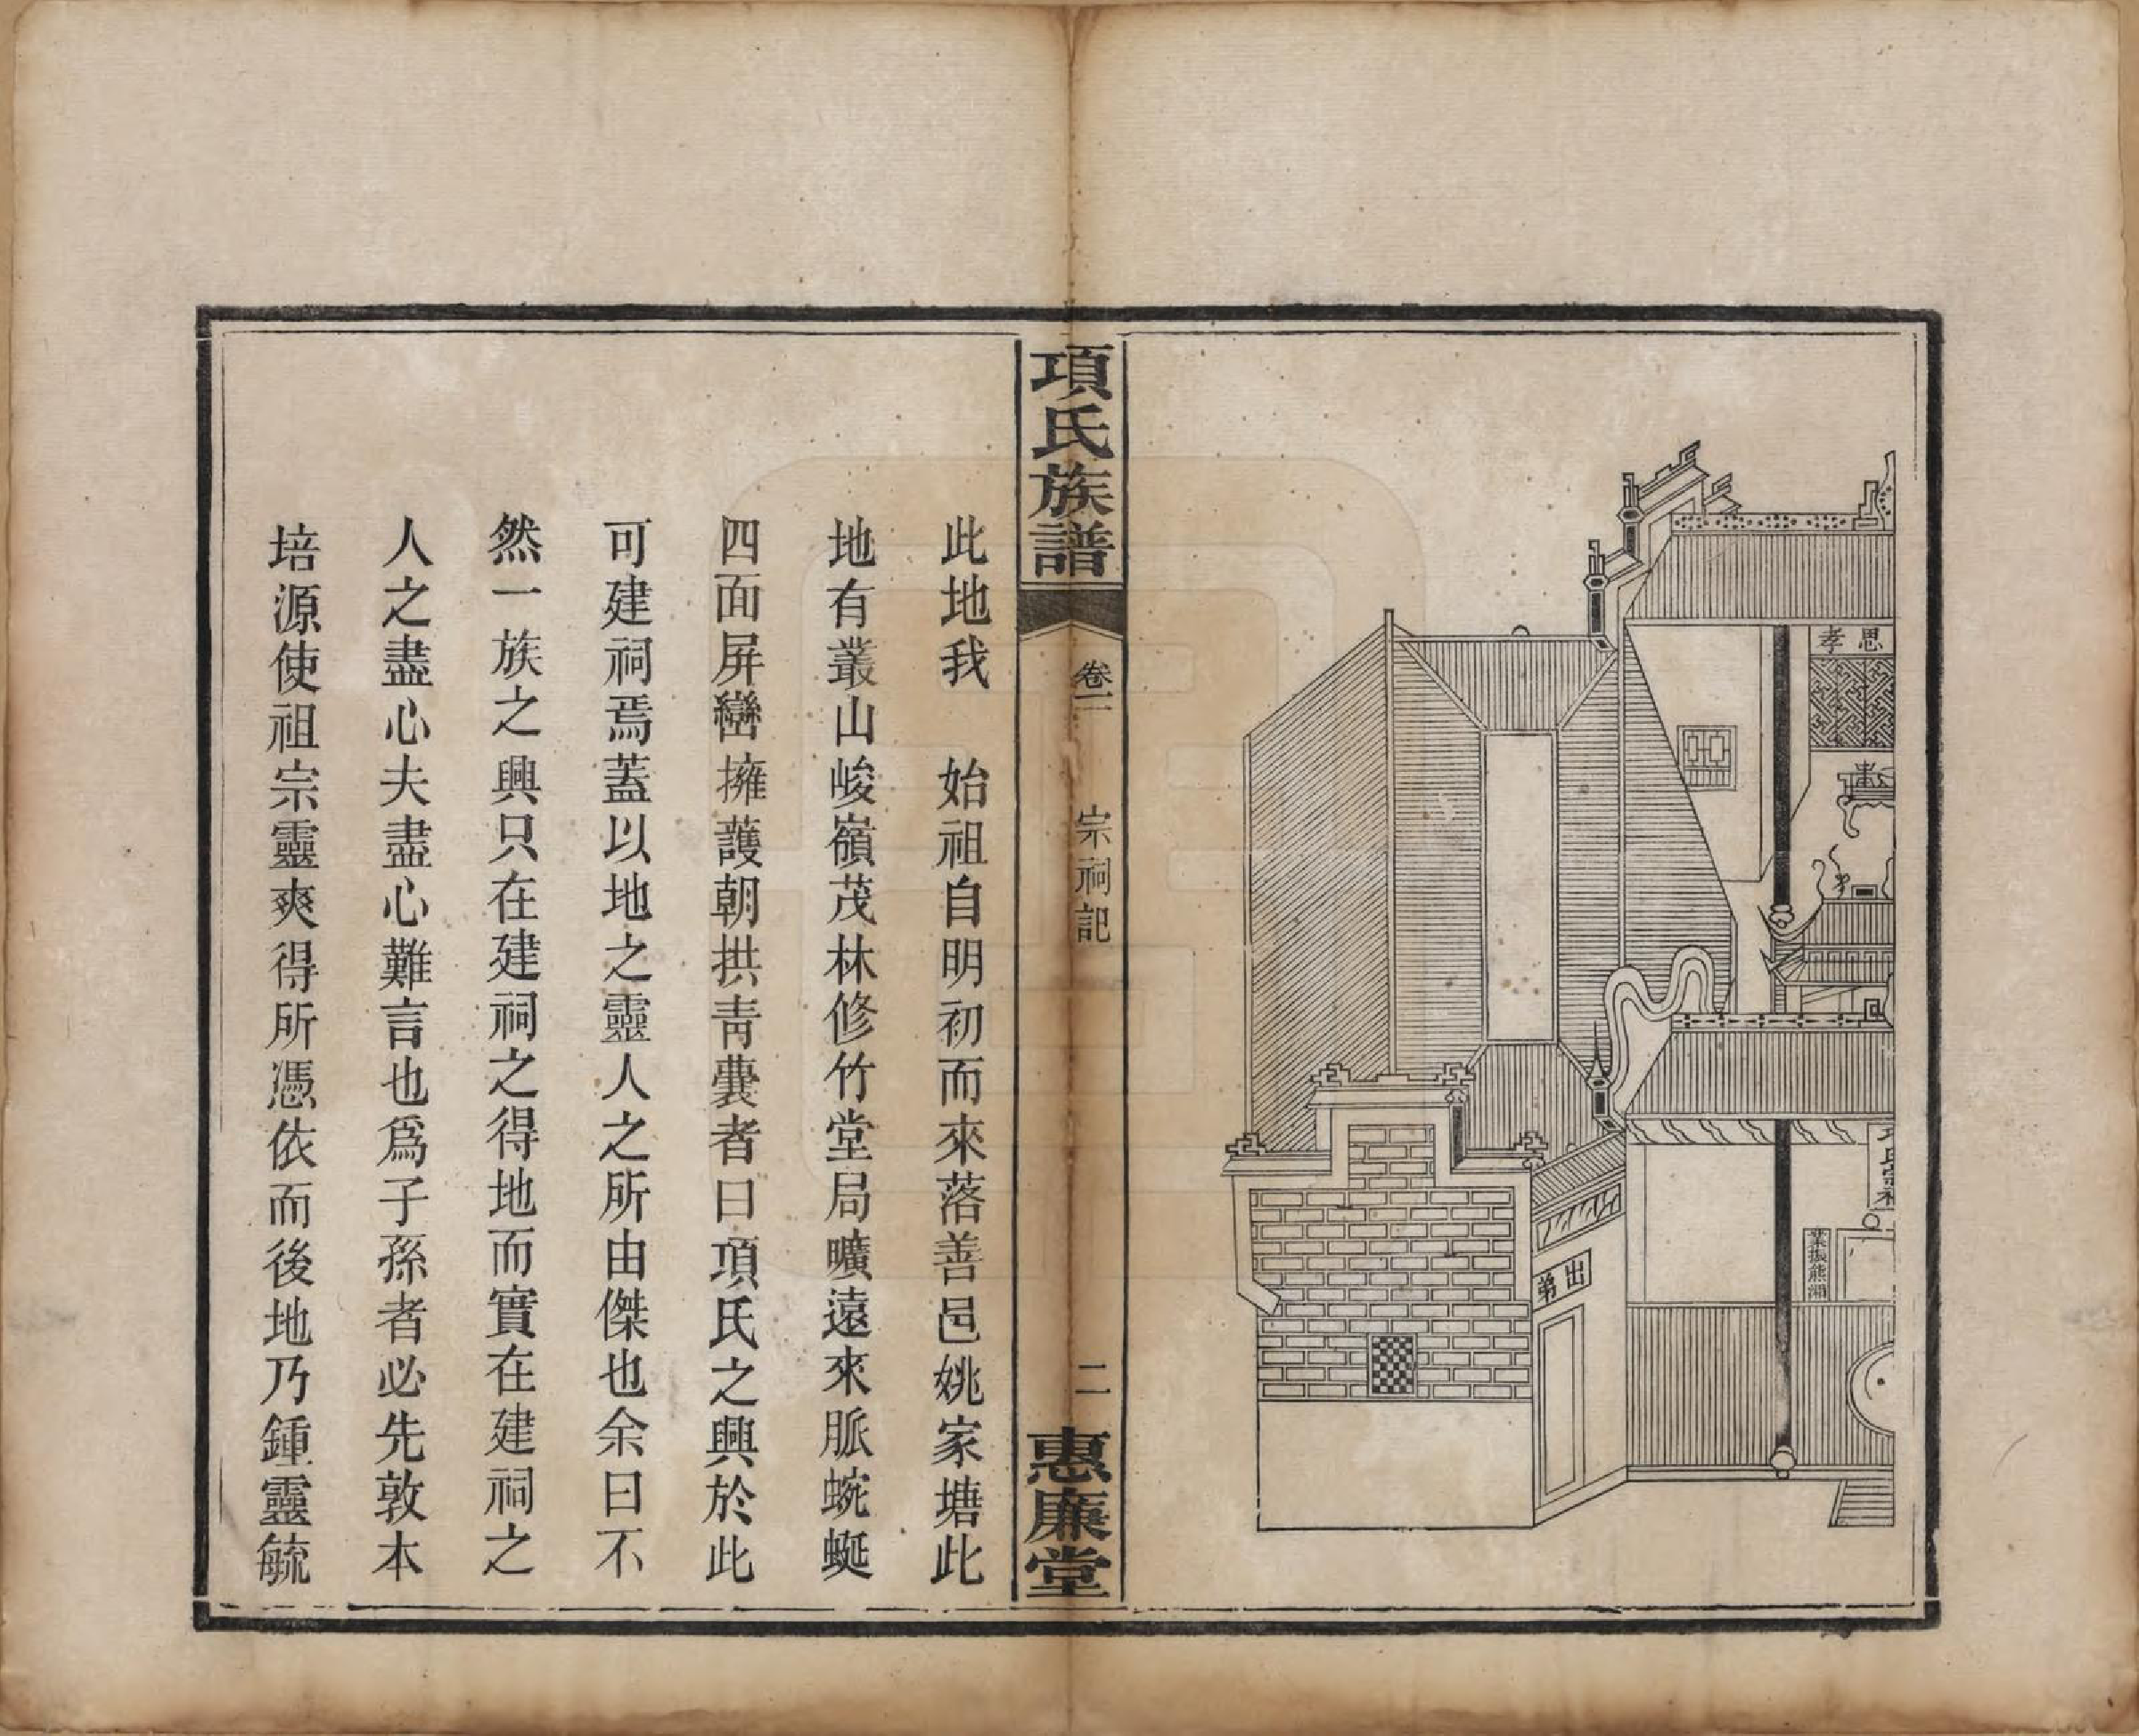 思孝
項氏宗祠
業振熊湘
出弟
項氏族譜
卷二
宗祠記
二
惠廉堂
此地我　始祖自明初而來落善邑姚家塘此
地有叢山峻嶺茂林修竹堂局曠遠來脈蜿蜒
四面屏巒擁護朝拱青囊者曰項氏之興於此
可建祠焉蓋以地之靈人之所由傑也余曰不
然一族之興只在建祠之得地而實在建祠之
人之盡心夫盡心難言也爲子孫者必先敦本
培源使祖宗靈爽得所憑依而後地乃鍾靈毓